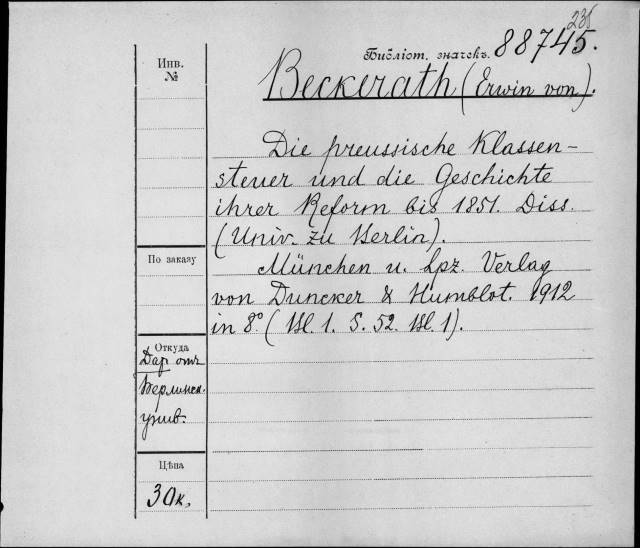 235
Библіот. значекъ. 88745.
Инв.
№
Beckerath (Erwin von).
Die preussische Klassen-
steuer und die Geschichte
ihrer Reform bis 1851. Diss.
(Univ. zu Berlin).
По заказу
München u. Lpz. Verlag
von Duncker & Humblot. 1912
in 8° (Bl. 1. S. 52. Bl. 1).
Откуда
Дар отъ
Берлинск.
унив.
Цѣна
30к.